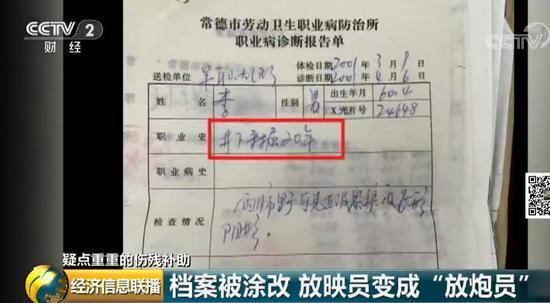 CCTV 2
财经
常德市劳动卫生职业病防治所
职业病诊断报告单
体检日期2001年3月9日
送检单位
诊断日期2001年4月6日
姓名
李
性别
男
出生年月
60.4
X光片号
24648
职业史
井下采掘20年
职业病史
检查情况
阴影.
疑点重重的伤残补助
经济信息联播
档案被涂改 放映员变成“放炮员”